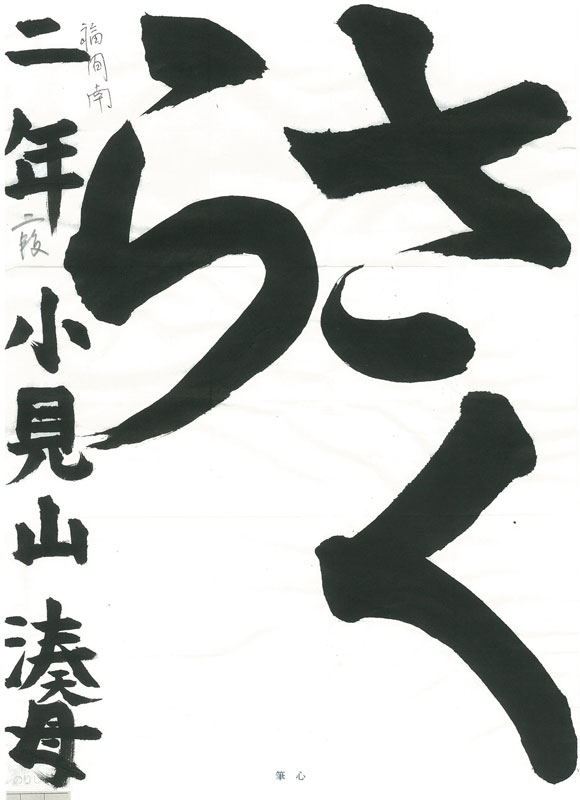 さく
ら
福間南
二年 小見山 湊母
二段
筆心